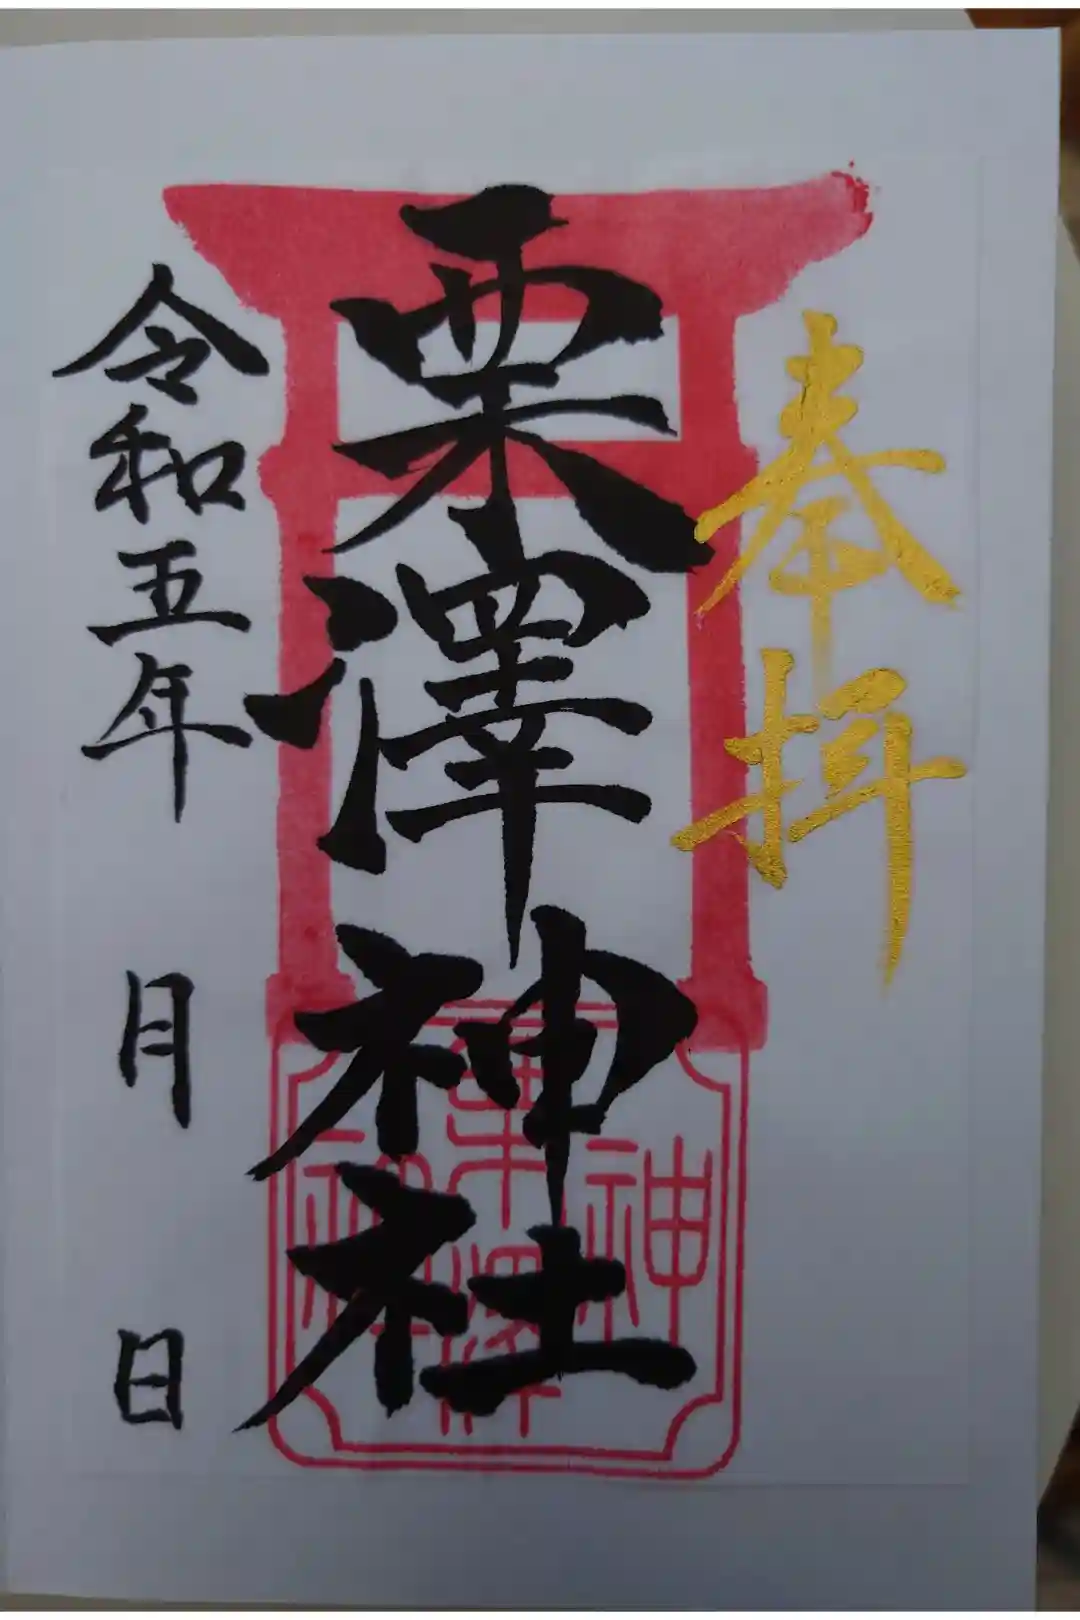 奉拝
栗澤神社
令和五年 月 日
栗澤
神社